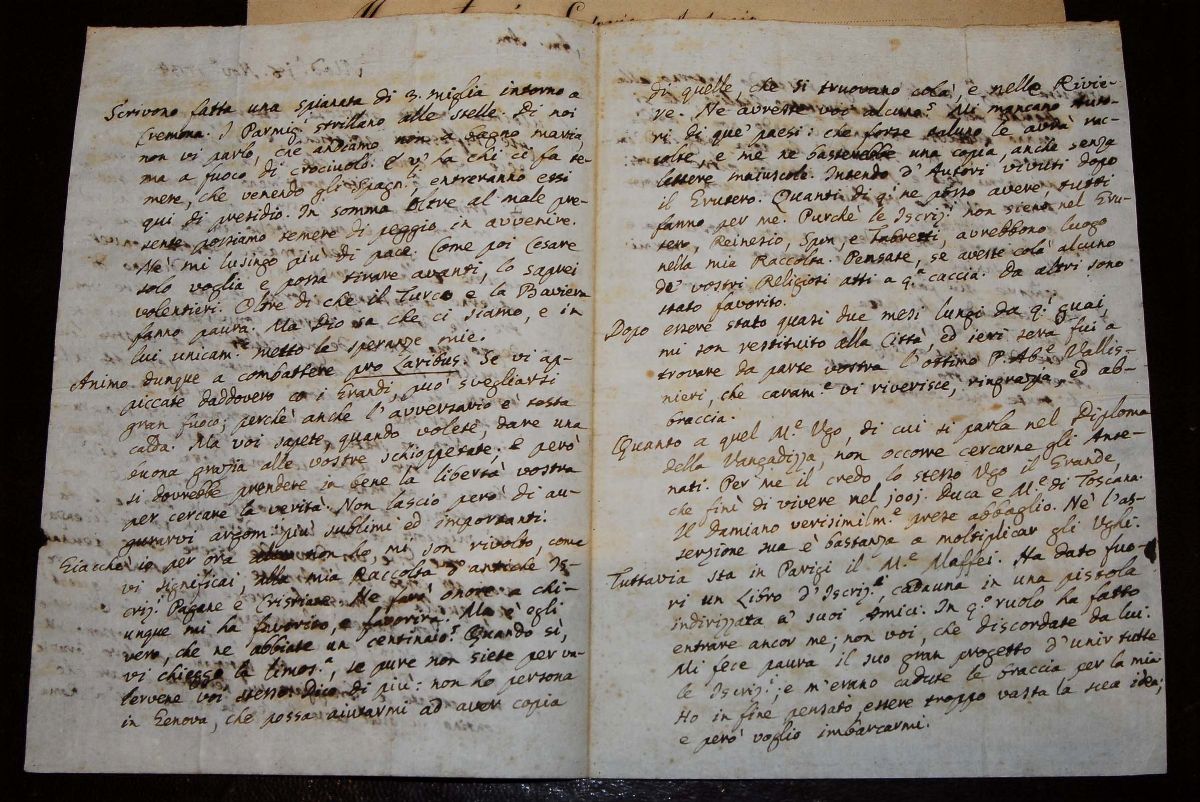 Scrivono fatta una spianata di 3. miglia intorno a
Cremona. I Parmig. strillano alle stelle. Di noi
non vi parlo, che andiamo non a bagno maria,
ma a fuoco di crociuoli. E v'ha chi ci fa te-
mere, che venendo gli Spagn.li entreranno essi
qui di presidio. In somma oltre al male pre-
sente possiamo temere di peggio in avvenire.
Nè mi lusingo più di pace. Come poi Cesare
solo voglia e possa tirare avanti, lo saprei
volentieri. Oltre di che il Turco e la Baviera
fanno paura. Ma Dio sa che ci siamo, e in
lui unicam.e metto le speranze mie.
Animo dunque a combattere pro Laribus. Se vi ap-
piccate daddovero co i Grandi, può svegliarsi
gran fuoco; perchè anche l'avversario è testa
calda. Ma voi sapete, quando volete, dare una
buona grazia alle vostre schioppetate; e però
si dovrebbe prendere in bene la libertà vostra
per cercare la verità. Non lascio però di au-
gurarvi argom.ti più sublimi ed importanti.
Giacchè io per ora non ho, mi son rivolto, come
vi significai, alla mia Raccolta d'antiche Is-
criz.i Pagane e Cristiane. Ne farò onore a chi-
unque mi ha favorito, e favorirà. Ma è egli
vero, che ne abbiate un centinaio? Quando sì,
vi chieggo la limos.a, se pure non siete per va-
lervene voi stesso. Dico di più: non ho persona
in Genova, che possa aiutarmi ad aver copia
di quelle, che si truovano colà, e nelle Rivie-
re. Ne avreste voi alcuno? Mi mancano Auto-
ri di que' paesi: che forse taluno le avrà rac-
colte, e me ne basterebbe una copia, anche senza
lettere maiuscole. Intendo d'Autori vivuti dopo
il Grutero. Quanti di q.i ne posso avere, tutti
fanno per me. Purchè le Iscriz.i non sieno nel Gru-
tero, Reinesio, Spon, e Fabretti, avrebbono luogo
nella mia Raccolta. Pensate, se aveste colà alcuno
de' vostri Religiosi atti a q.a caccia. Da altri sono
stato favorito.
Dopo essere stato quasi due mesi lungi da q.i guai,
mi son restituito alla Città, ed ieri sera fui a
trovare da parte vostra l'ottimo P. Ab.e Vallis-
nieri, che caram.e vi riverisce, ringrazia, ed ab-
braccia.
Quanto a quel M.e Ugo, di cui si parla nel Diploma
della Vangadizza, non occorre cercarne gli Ante-
nati. Per me il credo lo stesso Ugo il Grande,
che finì di vivere nel 1001. Duca e M.e di Toscana.
Il Damiano verisimilm.e prese abbaglio. Nè l'as-
serzione sua è bastanza a moltiplicar gli Ughi.
Tuttavia sta in Parigi il M.e Maffei. Ha dato fuo-
ri un Libro d'Iscriz.i, cadauna in una pistola
indirizzata a' suoi Amici. In q.o ruolo ha fatto
entrare ancor me; non voi, che discordate da lui.
Mi fece paura il suo gran progetto d'unir tutte
le Iscriz.i; e m'erano cadute le braccia per la mia.
Ho in fine pensato essere troppo vasta la sua idea;
e però voglio imbarcarmi.